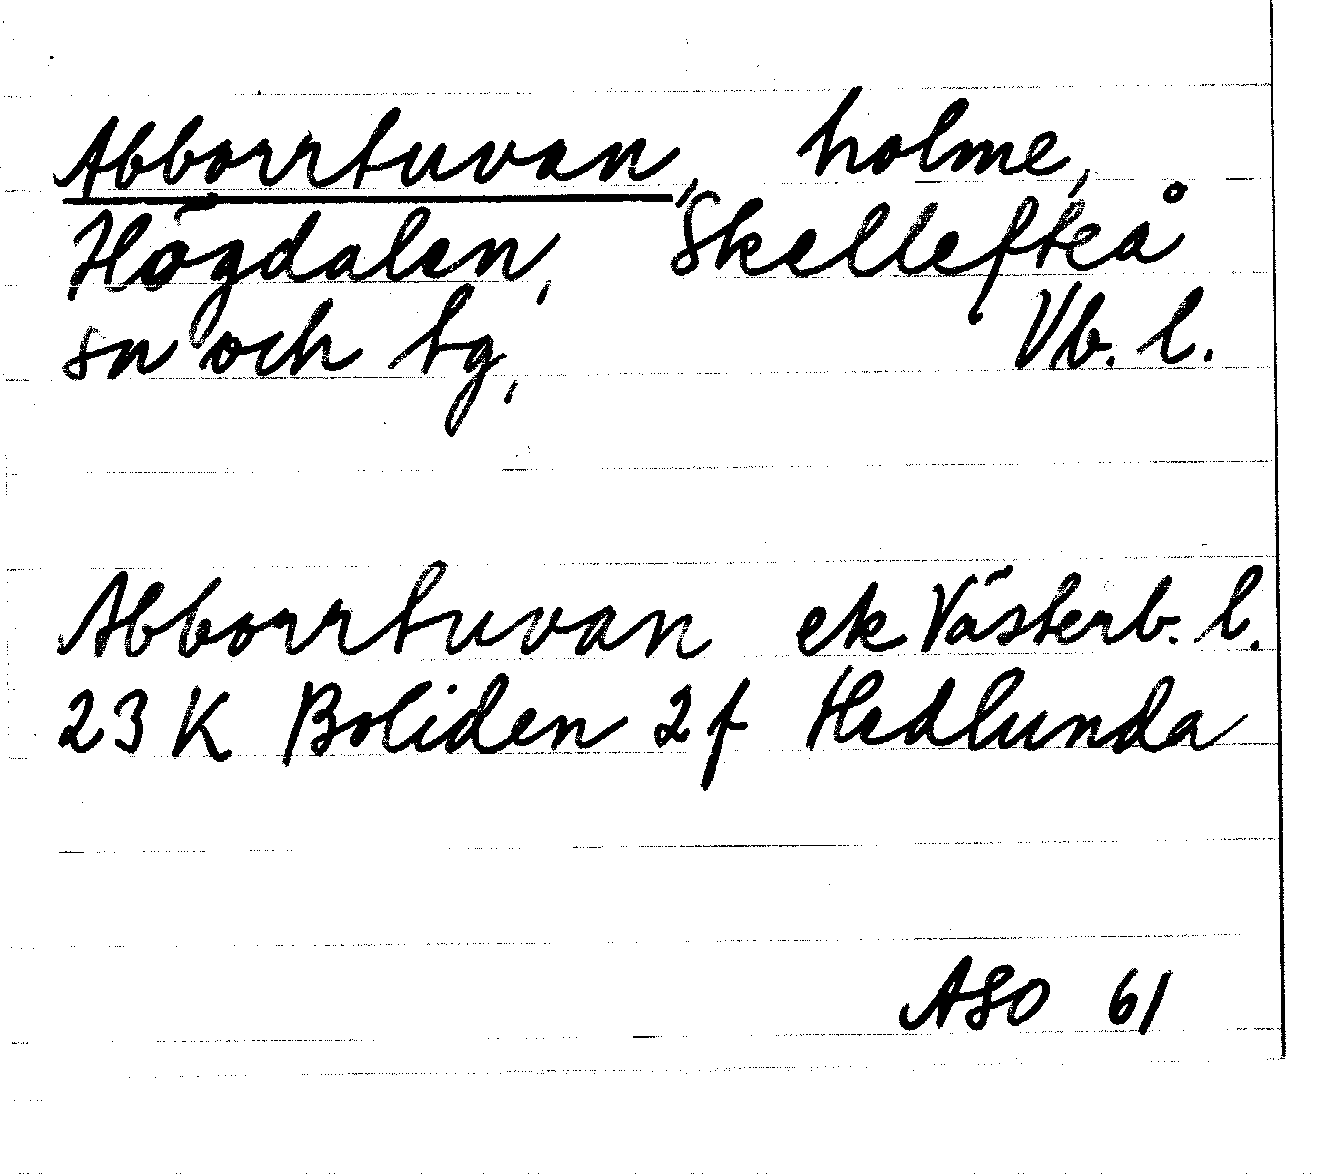 Abborrtuvan, holme,
Högdalen, Skellefteå
sn och tg, Vb. l.
Abborrtuvan ek Västerb. l.
23 K Boliden 2f Hedlunda
ASO 61